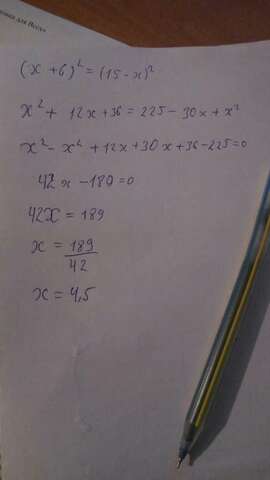 для
(x+6)² = (15-x)²
x² + 12x+36 = 225-30x+x²
x² - x² + 12x+30x+36-225=0
42x - 189=0
42x = 189
x = 189/42
x = 4,5